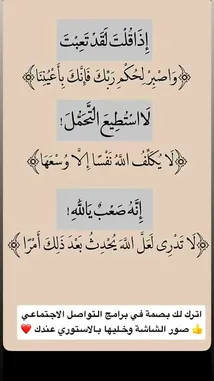 إِذَا قُلْتَ لَقَدْ تَعِبْتَ
﴿وَاصْبِرْ لِحُكْمِ رَبِّكَ فَإِنَّكَ بِأَعْيُنِنَا﴾
لَا اسْتَطِيعَ التَّحَمُّلَ!
﴿لَا يُكَلِّفُ اللَّهُ نَفْسًا إِلَّا وُسْعَهَا﴾
إِنَّهُ صَعْبٌ يَاللَّهِ!
﴿لَا تَدْرِى لَعَلَّ اللَّهَ يُحْدِثُ بَعْدَ ذَلِكَ أَمْرًا﴾
اترك لك بصمة في برامج التواصل الاجتماعي
👍 صور الشاشة وخليها بالاستوري عندك ❤️